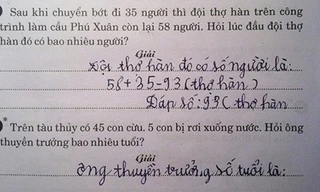 Sau khi chuyển bớt đi 35 người thì đội thợ hàn trên công
trình làm cầu Phú Xuân còn lại 58 người. Hỏi lúc đầu đội thợ
hàn đó có bao nhiêu người?
Giải
Đội thợ hàn đó có số người là:
58 + 35 = 93 (thợ hàn)
Đáp số: 93 (thợ hàn
* Trên tàu thủy có 45 con cừu. 5 con bị rơi xuống nước. Hỏi ông
thuyền trưởng bao nhiêu tuổi?
Giải
Ông thuyền trưởng số tuổi là: